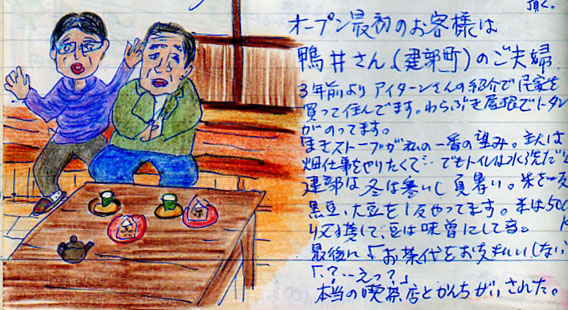 頂く。
オープン最初のお客様は
鴨井さん(建部町)のご夫婦
3年前より アイターンさんの紹介で民家を
買って住んでます。わらぶき屋根でトタン
がのってます。
まきストーブが私の一番の望み。主人は
畑仕事をやりたくて‥でもトイレは水洗だし
建部は冬は寒いし夏暑い。米を一反
黒豆、大豆を1反やってます。米は500
収穫して、豆は味噌にしてる。
最後に「お茶代をお支払いしない
「?‥えっ?」
本当の喫茶店とかんちがいされた。